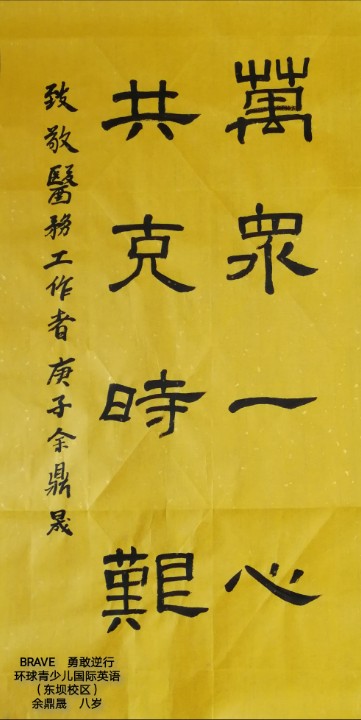 萬眾一心
共克時艱
致敬醫務工作者庚子余鼎晟
BRAVE 勇敢逆行
环球青少儿国际英语
（东坝校区）
余鼎晟 八岁